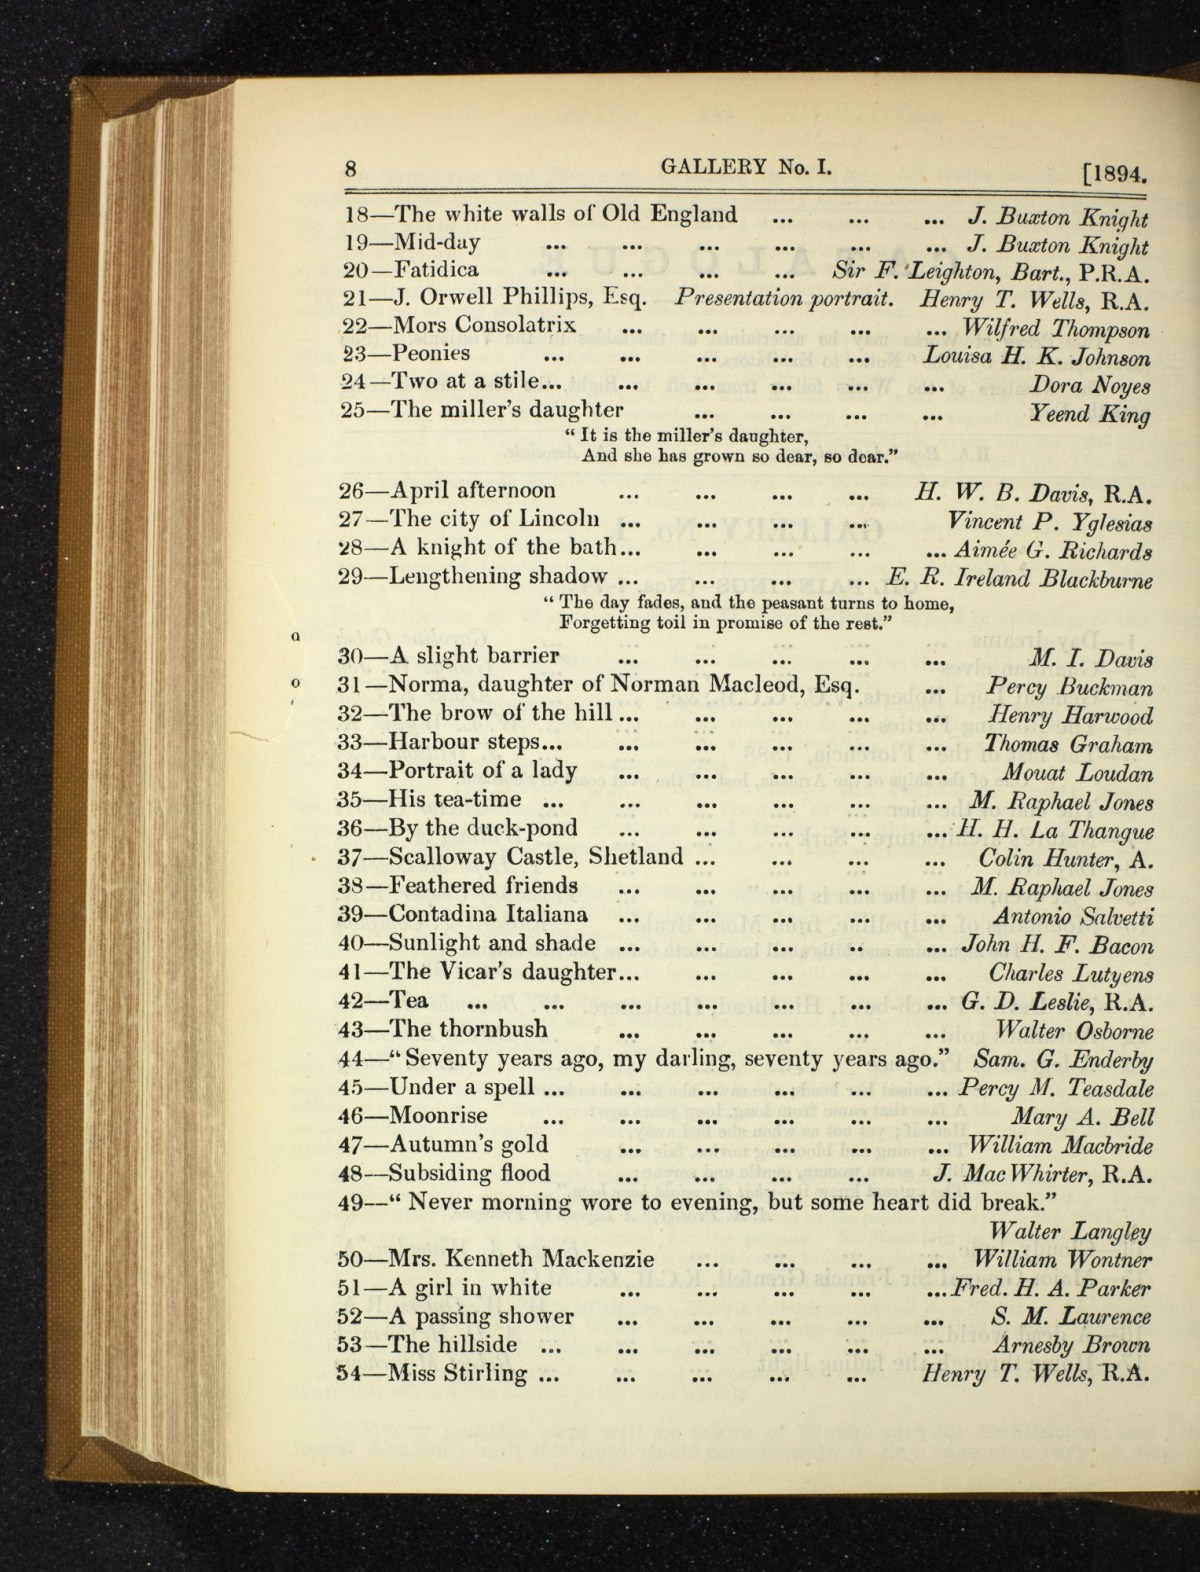 8 GALLERY No. I. [1894.
18—The white walls of Old England ... ... ... J. Buxton Knight
19—Mid-day ... ... ... ... ... ... J. Buxton Knight
20—Fatidica ... ... ... ... Sir F. Leighton, Bart., P.R.A.
21—J. Orwell Phillips, Esq. Presentation portrait. Henry T. Wells, R.A.
22—Mors Consolatrix ... ... ... ... ... Wilfred Thompson
23—Peonies ... ... ... ... ... Louisa H. K. Johnson
24—Two at a stile... ... ... ... ... ... Dora Noyes
25—The miller's daughter ... ... ... ... Yeend King
“It is the miller's daughter,
And she has grown so dear, so dear.”
26—April afternoon ... ... ... ... H. W. B. Davis, R.A.
27—The city of Lincoln ... ... ... ... Vincent P. Yglesias
28—A knight of the bath... ... ... ... ... Aimée G. Richards
29—Lengthening shadow ... ... ... ... E. R. Ireland Blackburne
“The day fades, and the peasant turns to home,
Forgetting toil in promise of the rest.”
30—A slight barrier ... ... ... ... ... M. I. Davis
31—Norma, daughter of Norman Macleod, Esq. ... Percy Buckman
32—The brow of the hill ... ... ... ... ... Henry Harwood
33—Harbour steps... ... ... ... ... ... Thomas Graham
34—Portrait of a lady ... ... ... ... ... Mouat Loudan
35—His tea-time ... ... ... ... ... ... M. Raphael Jones
36—By the duck-pond ... ... ... ... ... H. H. La Thangue
37—Scalloway Castle, Shetland ... ... ... ... Colin Hunter, A.
38—Feathered friends ... ... ... ... ... M. Raphael Jones
39—Contadina Italiana ... ... ... ... ... Antonio Salvetti
40—Sunlight and shade ... ... ... .. ... John H. F. Bacon
41—The Vicar's daughter... ... ... ... ... Charles Lutyens
42—Tea ... ... ... ... ... ... ... G. D. Leslie, R.A.
43—The thornbush ... ... ... ... ... Walter Osborne
44—“Seventy years ago, my darling, seventy years ago.” Sam. G. Enderby
45—Under a spell ... ... ... ... ... ... Percy M. Teasdale
46—Moonrise ... ... ... ... ... ... Mary A. Bell
47—Autumn's gold ... ... ... ... ... William Macbride
48—Subsiding flood ... ... ... ... J. MacWhirter, R.A.
49—“Never morning wore to evening, but some heart did break.”
Walter Langley
50—Mrs. Kenneth Mackenzie ... ... ... ... William Wontner
51—A girl in white ... ... ... ... ... Fred. H. A. Parker
52—A passing shower ... ... ... ... ... S. M. Laurence
53—The hillside ... ... ... ... ... ... Arnesby Brown
54—Miss Stirling ... ... ... ... ... Henry T. Wells, R.A.